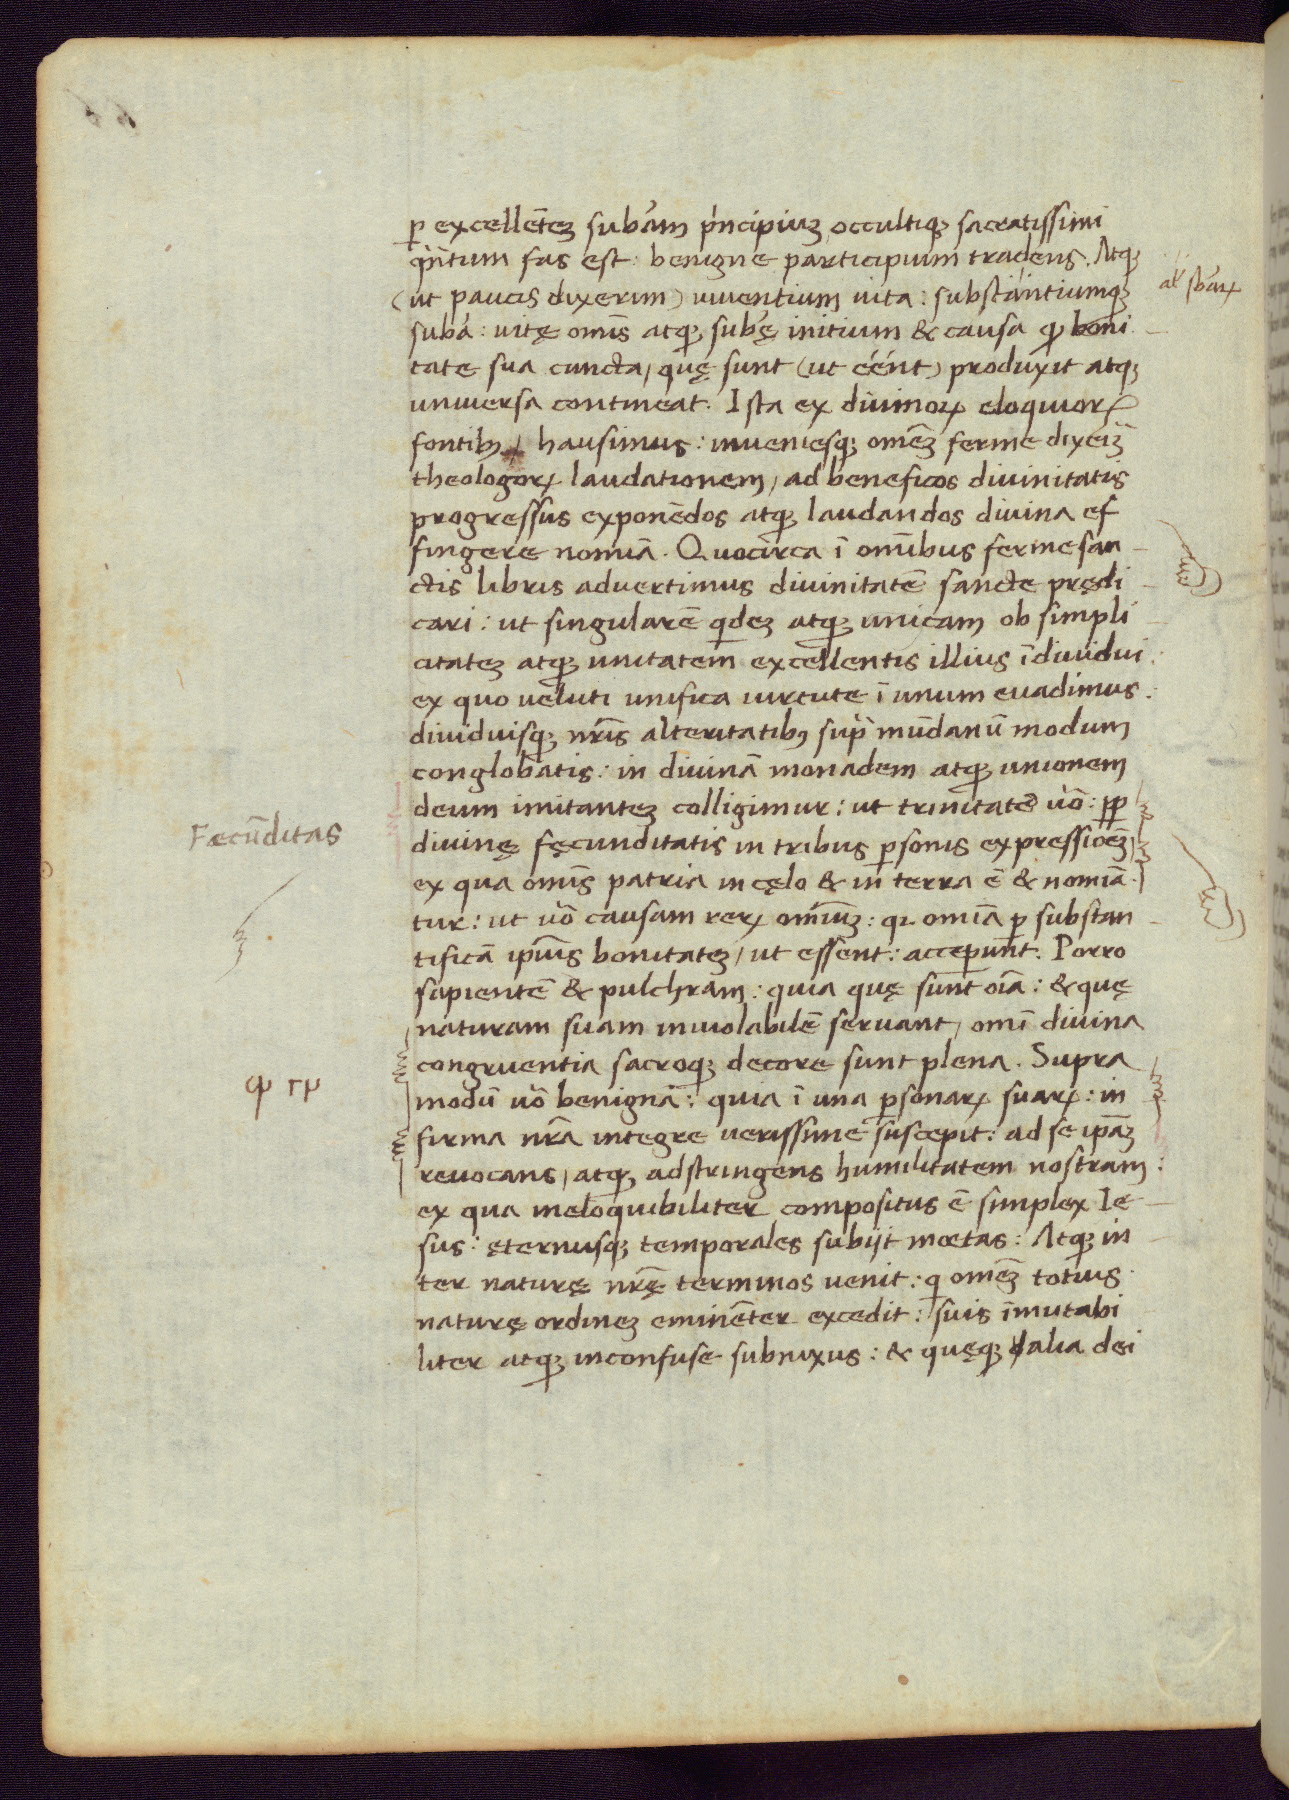 ꝑ excellēteꝫ subãm p̍ncipiuꝫ occultiqꝫ sacratissimi
q̍ntum fas est: benigne participium tradens. Atqꝫ
(ut paucis dixerim) viventium vita: substantiumqꝫ
al̕ sb̃arꝝ
subã: vitę omīs atqꝫ subę̃ initium & causa ꝙ boni
tate sua cuncta, quę sunt (ut eēnt) produxit atqꝫ
universa contineat. Ista ex divinorꝝ eloquiorꝝ
fontibꝰ, hausimus: inveniesqꝫ omēꝫ ferme dixeiꝫ̃
theologorꝝ laudationem, ad beneficos divinitatis
progressus exponēdos atqꝫ laudandos divina ef
fingere nomiā. Quocirca ī omībus ferme san
ctis libris advertimus divinitatē sancte prędi
cari: ut singularē qdeꝫ atqꝫ unicam ob simpli
citateꝫ atqꝫ unitatem excellentis illius īdividui:
ex quo veluti unifica virtute ī unum evadimus.
dividuisqꝫ nr̄is alteritatibꝰ sup̃ mūdanū modum
conglobatis: in divinā monadem atqꝫ unionem
deum imitanteꝫ colligimur: ut trinitatē vō: ꝓꝑ
Fæcūditas
divinę fęcunditatis in tribus ꝑsonis expressioēꝫ,
ex qua omīs patria in cęlo & in terra ē & nomiā
tur: ut vō causam rerꝝ omīuꝫ: qꝛ omīa ꝑ substan
tificā ipīus bonitateꝫ, ut essent: acceꝑunt. Porro
sapientē & pulchram: quia quę sunt oīa: & quę
naturam suam inviolabilē servant, omī divina
congruentia sacroqꝫ decore sunt plena. Supra
modū vō benignā: quia ī una ꝑsonarꝝ suarꝝ: in
firma nr̄a integre verissime suscepit: ad se ipāꝫ
revocans, atqꝫ adstringens humilitatem nostram:
ex qua ineloquibiliter compositus ē simplex Ie
sus: ęternusqꝫ temporales subijt mœtas: Atqꝫ in
ter naturę nrę̄ terminos venit: q omēꝫ totius
naturę ordineꝫ eminēter excedit: suis īmutabi
liter atqꝫ inconfuse subnixus: & quęqꝫ alia dei